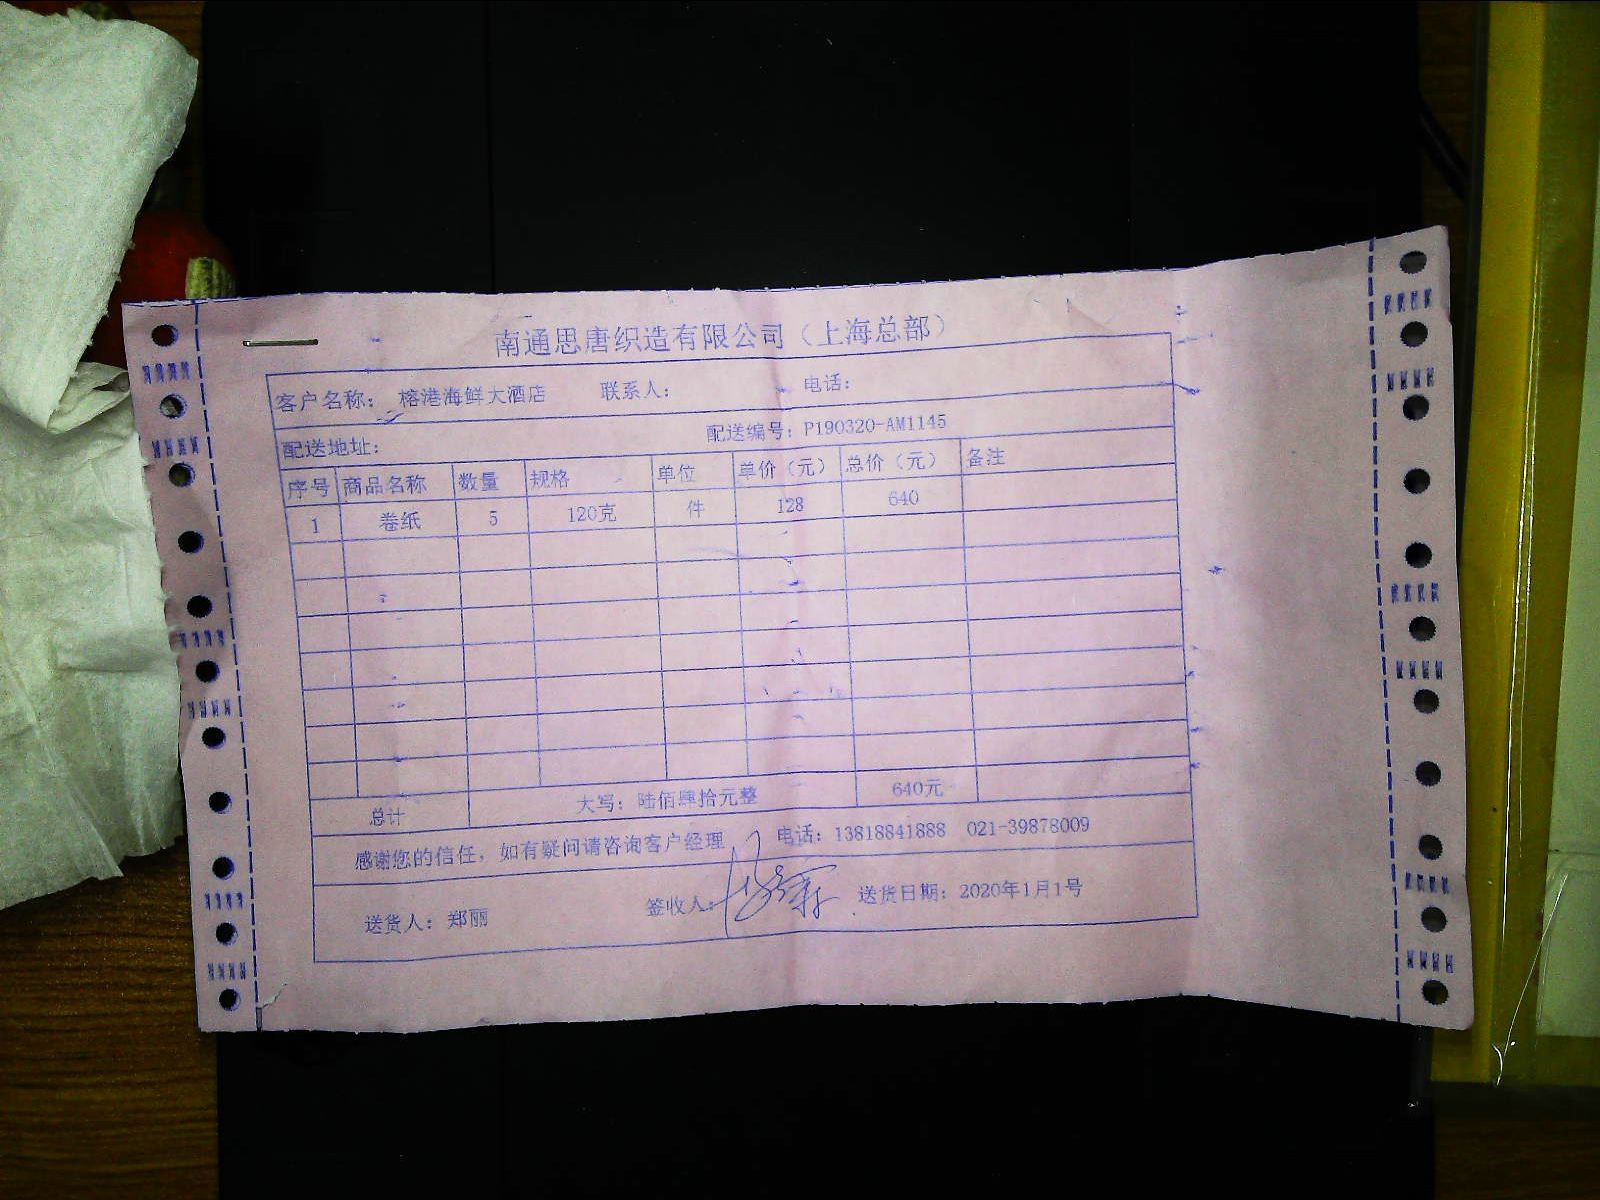 南通思唐织造有限公司（上海总部）
客户名称： 榕港海鲜大酒店 联系人： 电话：
配送地址： 配送编号：P190320-AM1145
序号 商品名称 数量 规格 单位 单价（元） 总价（元） 备注
1 卷纸 5 120克 件 128 640
总计 大写：陆佰肆拾元整 640元
感谢您的信任，如有疑问请咨询客户经理 电话：13818841888 021-39878009
送货人：郑丽 签收人： 送货日期：2020年1月1号